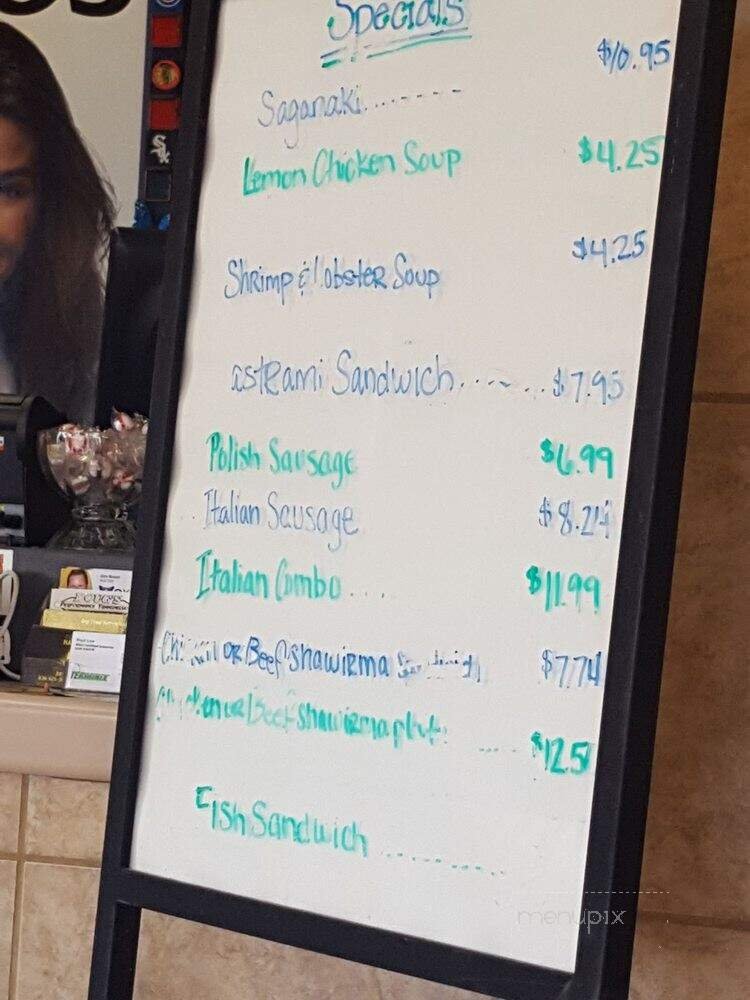 Specials
Saganaki.......... $10.95
Lemon Chicken Soup $4.25
Shrimp & lobster Soup $4.25
astrami Sandwich....... $7.95
Polish Sausage $6.99
Italian Sausage $8.24
Italian Combo.... $11.99
Chicken or Beef shawirma $7.74
Chicken or Beef shawirma $12.5
Fish Sandwich..........
menupix